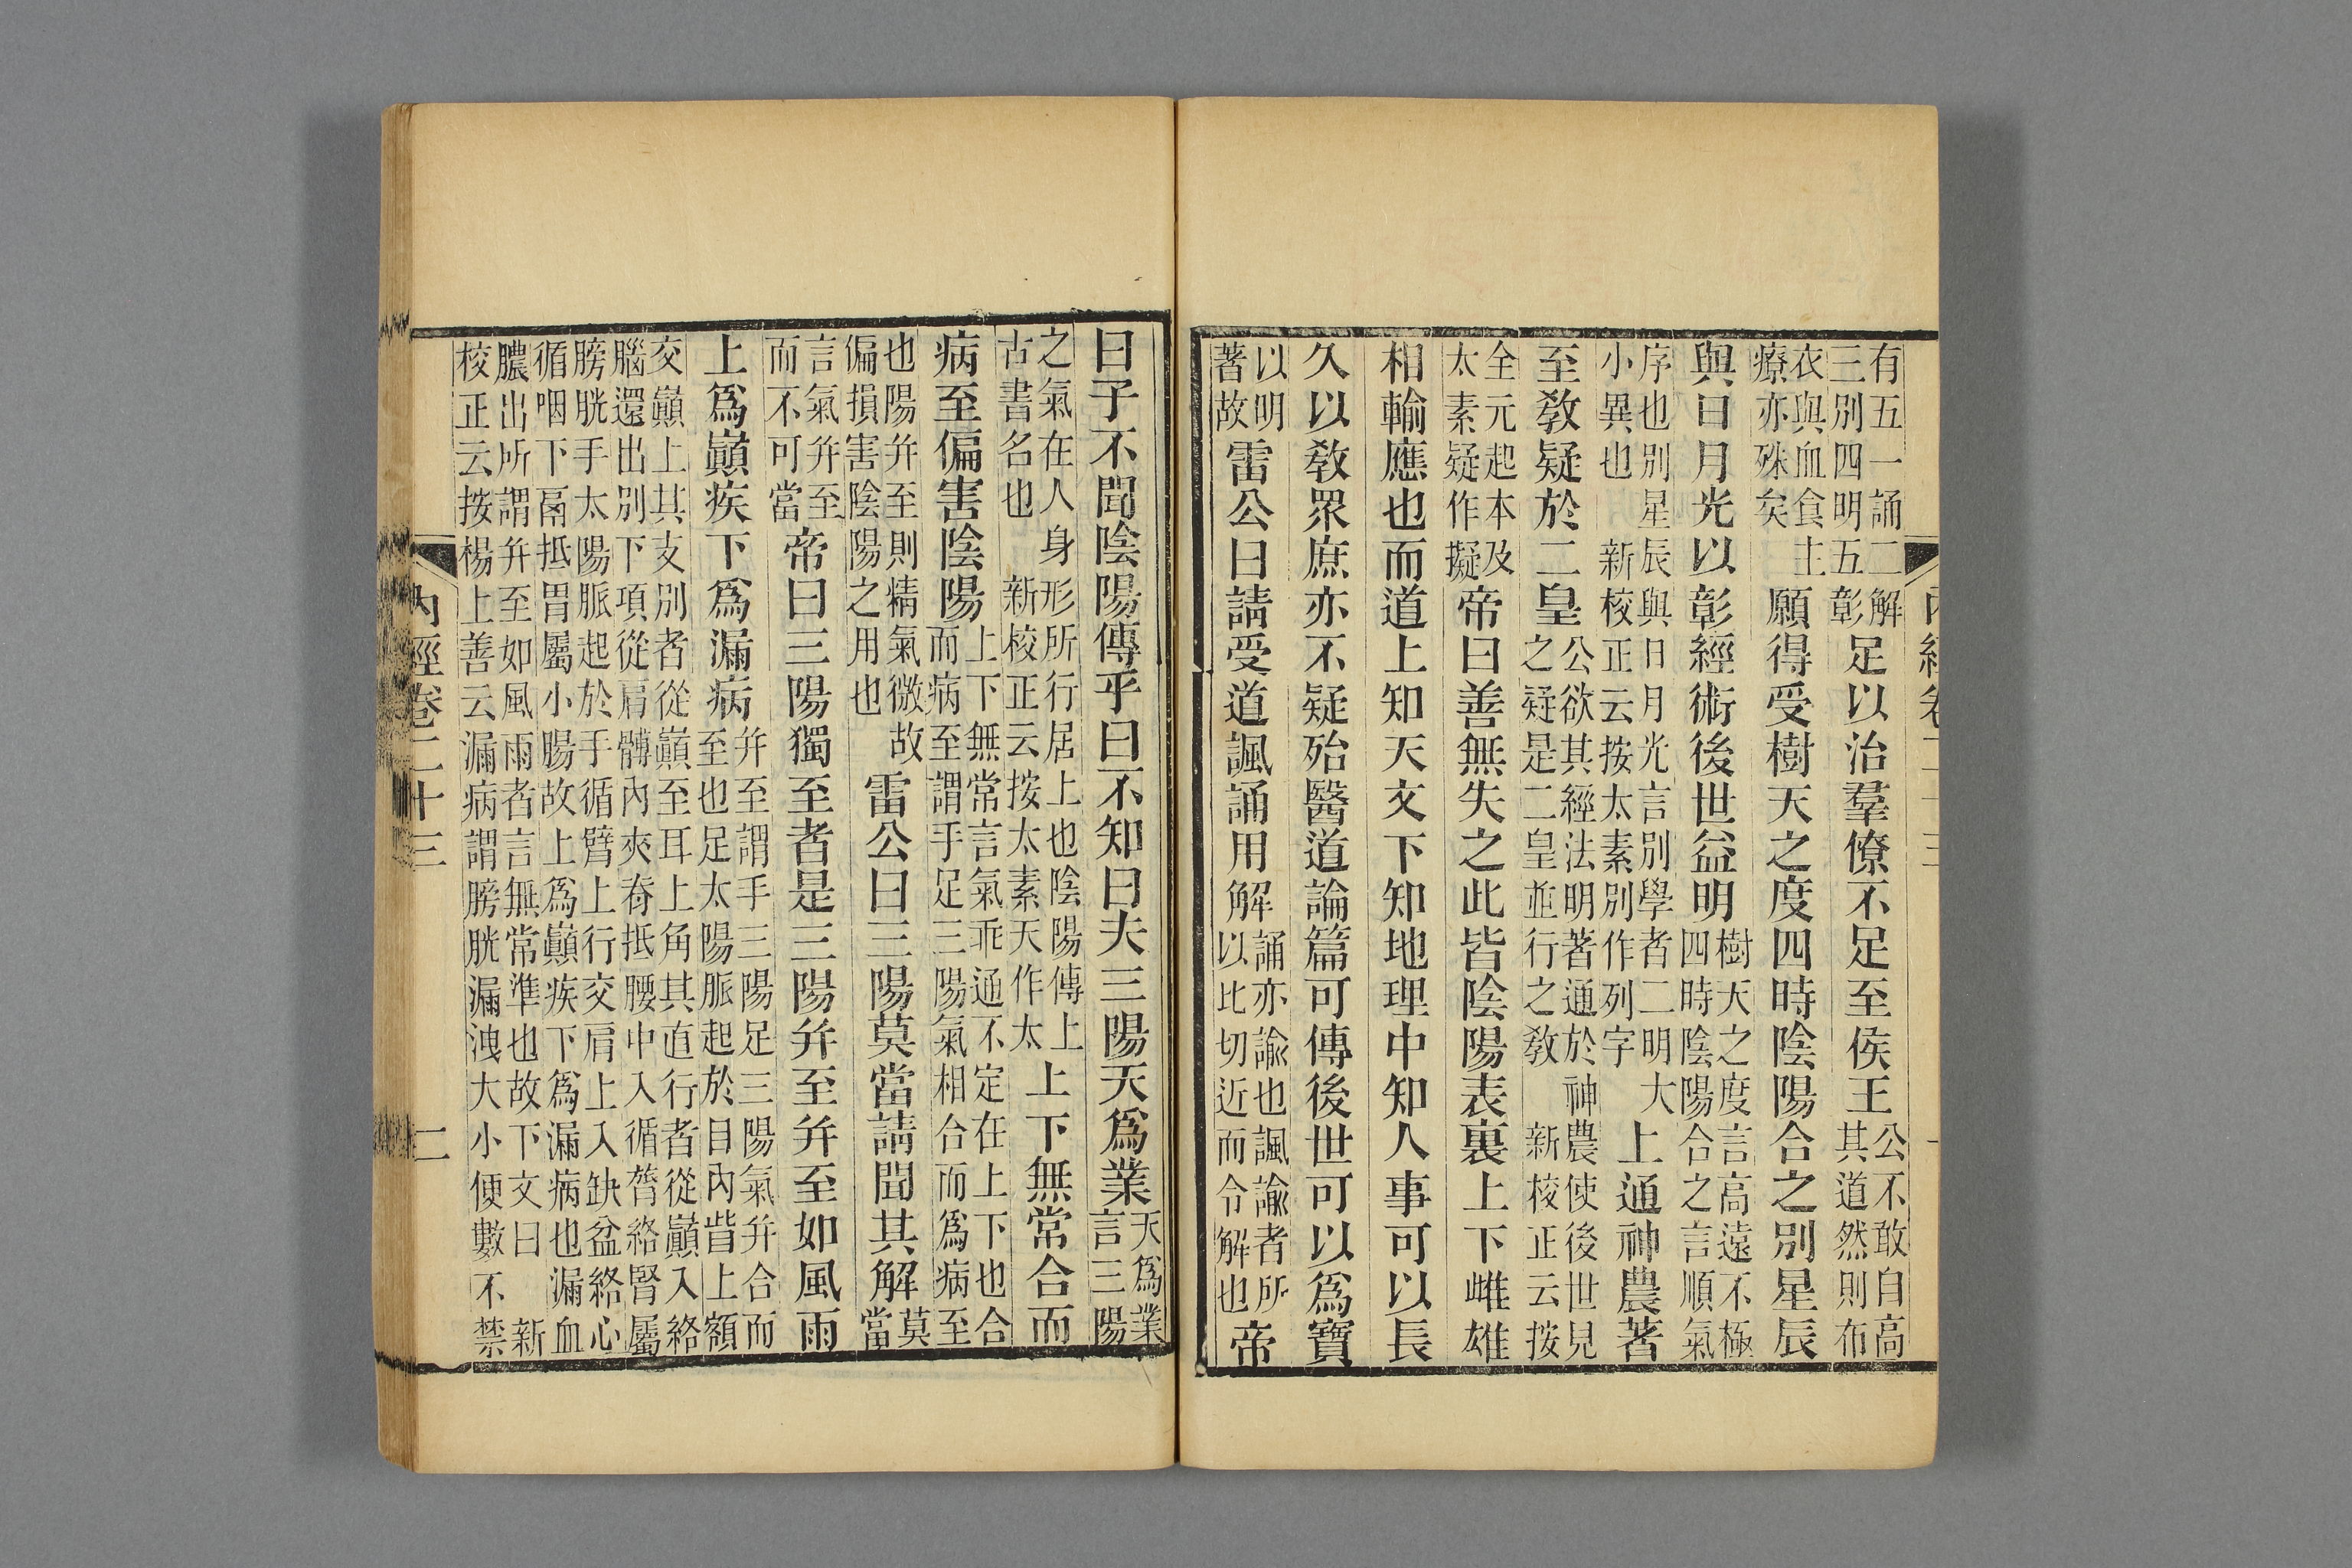 有五一誦二解三別四明五彰足以治羣僚不足至侯王公不敢自高其道然則布
衣與血食主療亦殊矣願得受樹天之度四時陰陽合之別星辰
與日月光以彰經術後世益明樹天之度言高遠不極四時陰陽合之言順氣
序也別星辰與日月光言別學者二明大小異也 新校正云按太素別作列字上通神農著
至教疑於二皇公欲其經法明著通於神農使後世見之疑是二皇並行之教 新校正云按
全元起本及太素疑作擬帝曰善無失之此皆陰陽表裏上下雌雄
相輸應也而道上知天文下知地理中知人事可以長
久以教眾庶亦不疑殆醫道論篇可傳後世可以爲寶
以明著故雷公曰請受道諷誦用解誦亦諭也諷諭者所以比切近而令解也帝
曰子不聞陰陽傳乎曰不知曰夫三陽天爲業天爲業言三陽
之氣在人身形所行居上也陰陽傳上古書名也 新校正云按太素天作太上下無常合而
病至偏害陰陽上下無常言氣乖通不定在上下也合而病至謂手足三陽氣相合而爲病至
也陽并至則精氣微故偏損害陰陽之用也雷公曰三陽莫當請聞其解莫當
言氣并至而不可當帝曰三陽獨至者是三陽并至并至如風雨
上爲巔疾下爲漏病并至謂手三陽足三陽氣并合而至也足太陽脈起於目內眥上額
交巔上其支別者從巔至耳上角其直行者從巔入絡腦還出別下項從肩髆內夾脊抵腰中入循膂絡腎屬
膀胱手太陽脈起於手循臂上行交肩上入缺盆絡心循咽下鬲抵胃屬小腸故上爲巔疾下爲漏病也漏血
膿出所謂并至如風雨者言無常準也故下文曰 新校正云按楊上善云漏病謂膀胱漏洩大小便數不禁
內經卷二十三 二